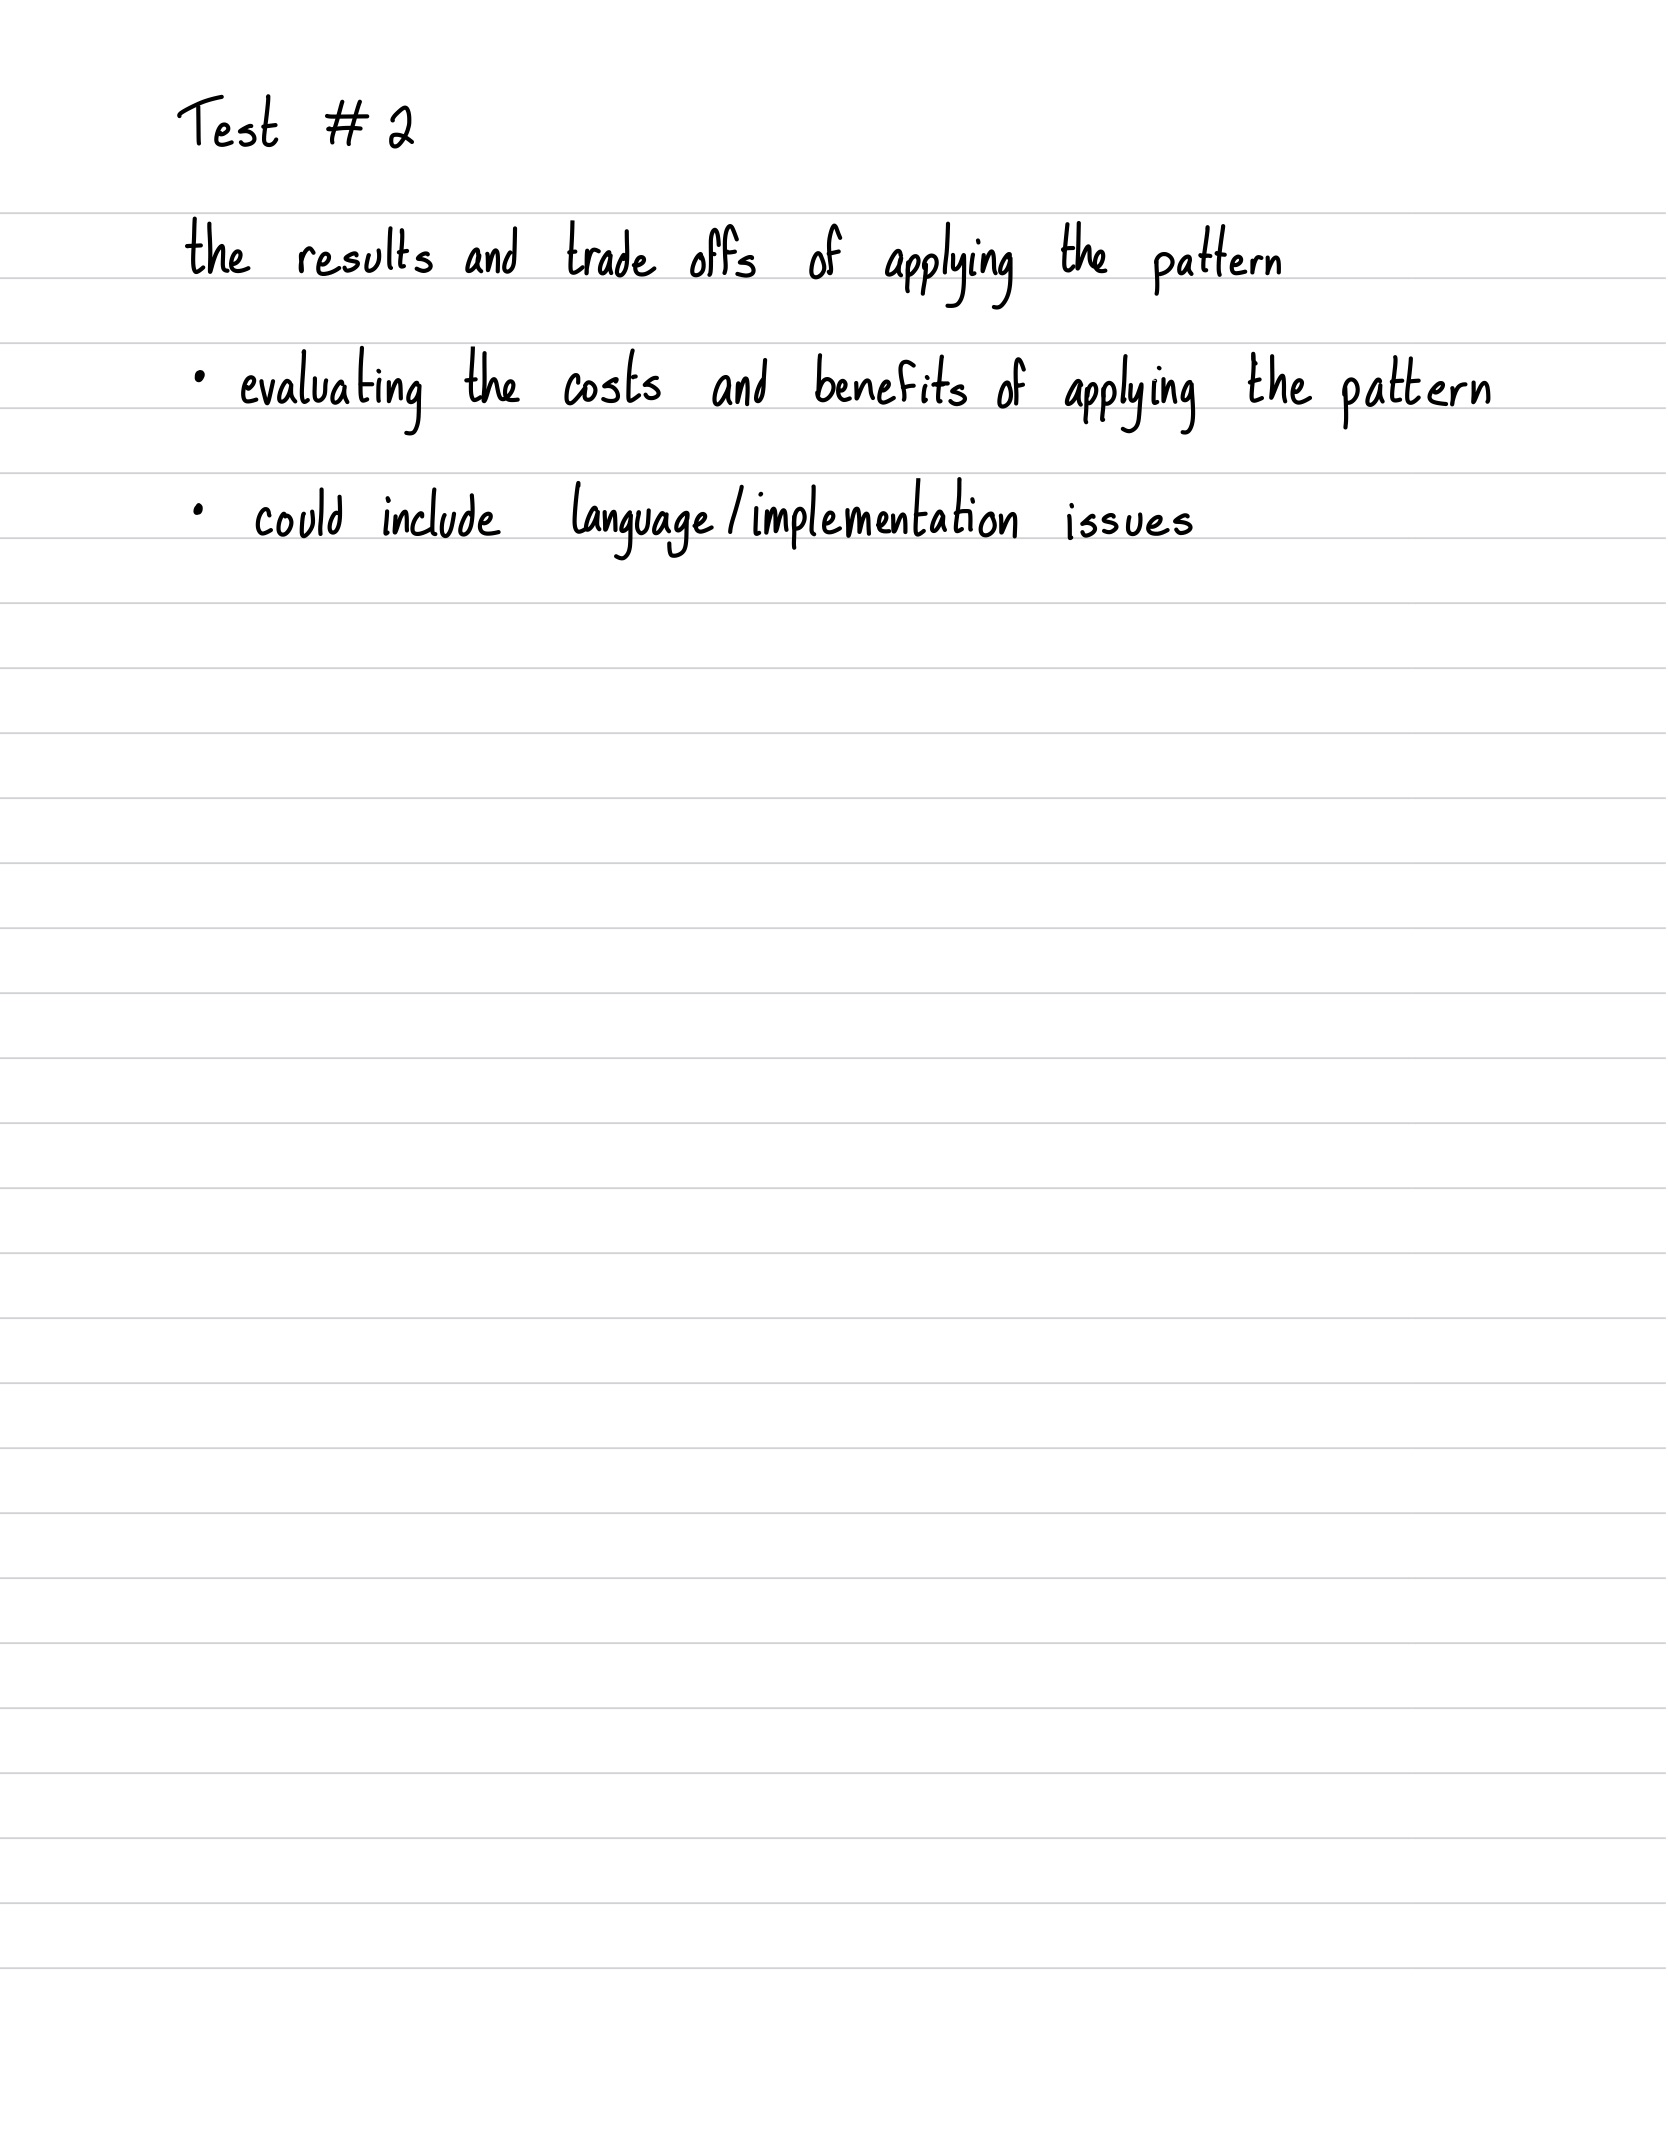 Test #2
the results and trade offs of applying the pattern
• evaluating the costs and benefits of applying the pattern
• could include language/implementation issues